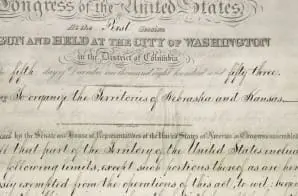 Congress of the United States,
At the First Session
GUN AND HELD AT THE CITY OF WASHINGTON
in the District of Columbia
fifth day of December one thousand eight hundred and fifty three.
To organize the Territories of Nebraska and Kansas.
by the Senate and House of Representatives of the United States of America in Congress assembled
all that part of the Territory of the United States includ
following limits, except such portions thereof as are her
ssly exempted from the operations of this act, to wit: beg